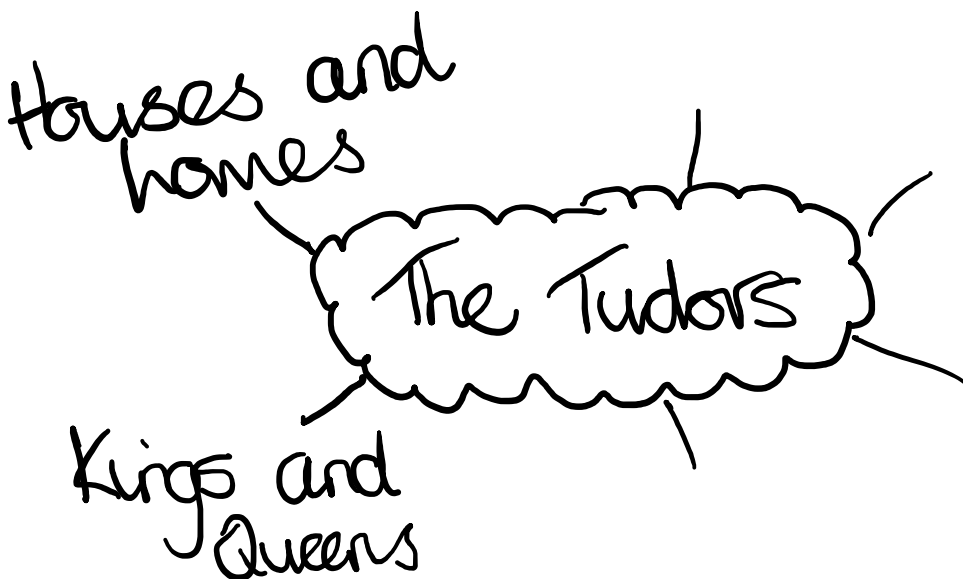 Houses and
homes
The Tudors
Kings and
Queens